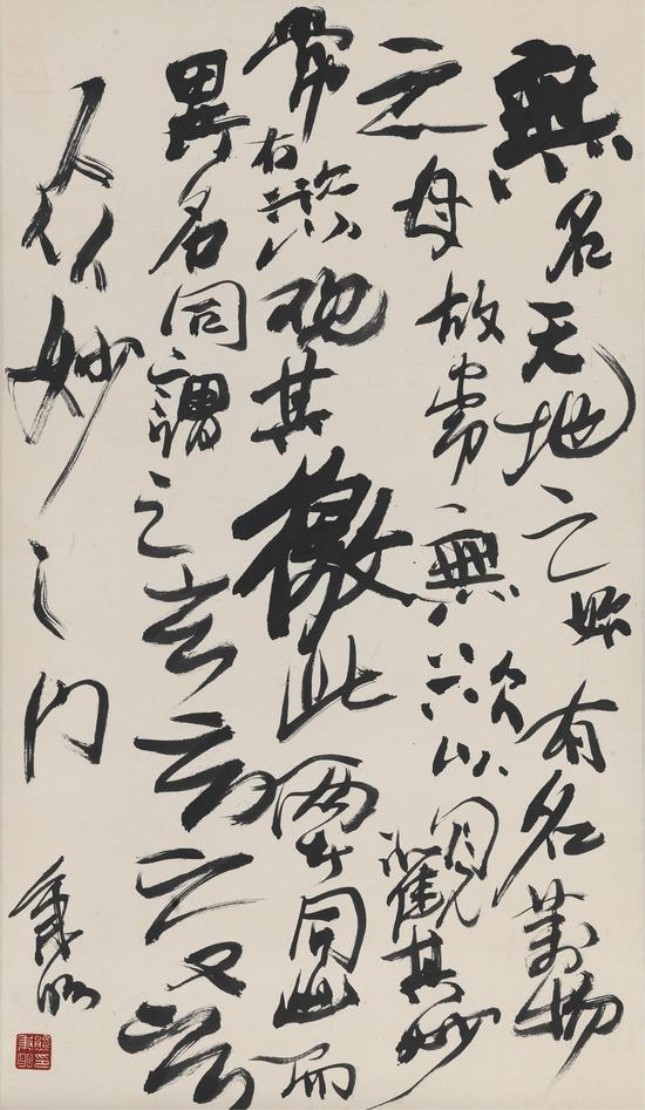 無名天地之始有名萬物
之母故常無欲以觀其妙
常有欲以观其徼此兩者同出而
異名同謂之玄玄之又玄
众妙之门
秉明